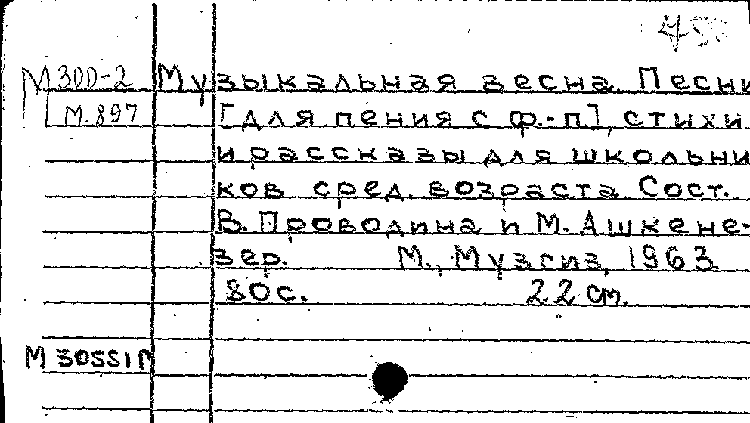 М 300-2 Музыкальная весна. Песни
М.897 [для пения с ф.-п], стихи
и рассказы для школьни-
ков сред. возраста. Сост.
В. Проводина и М. Ашкене-
зер. М., Музгиз, 1963.
80с. 22 см.
М 30551